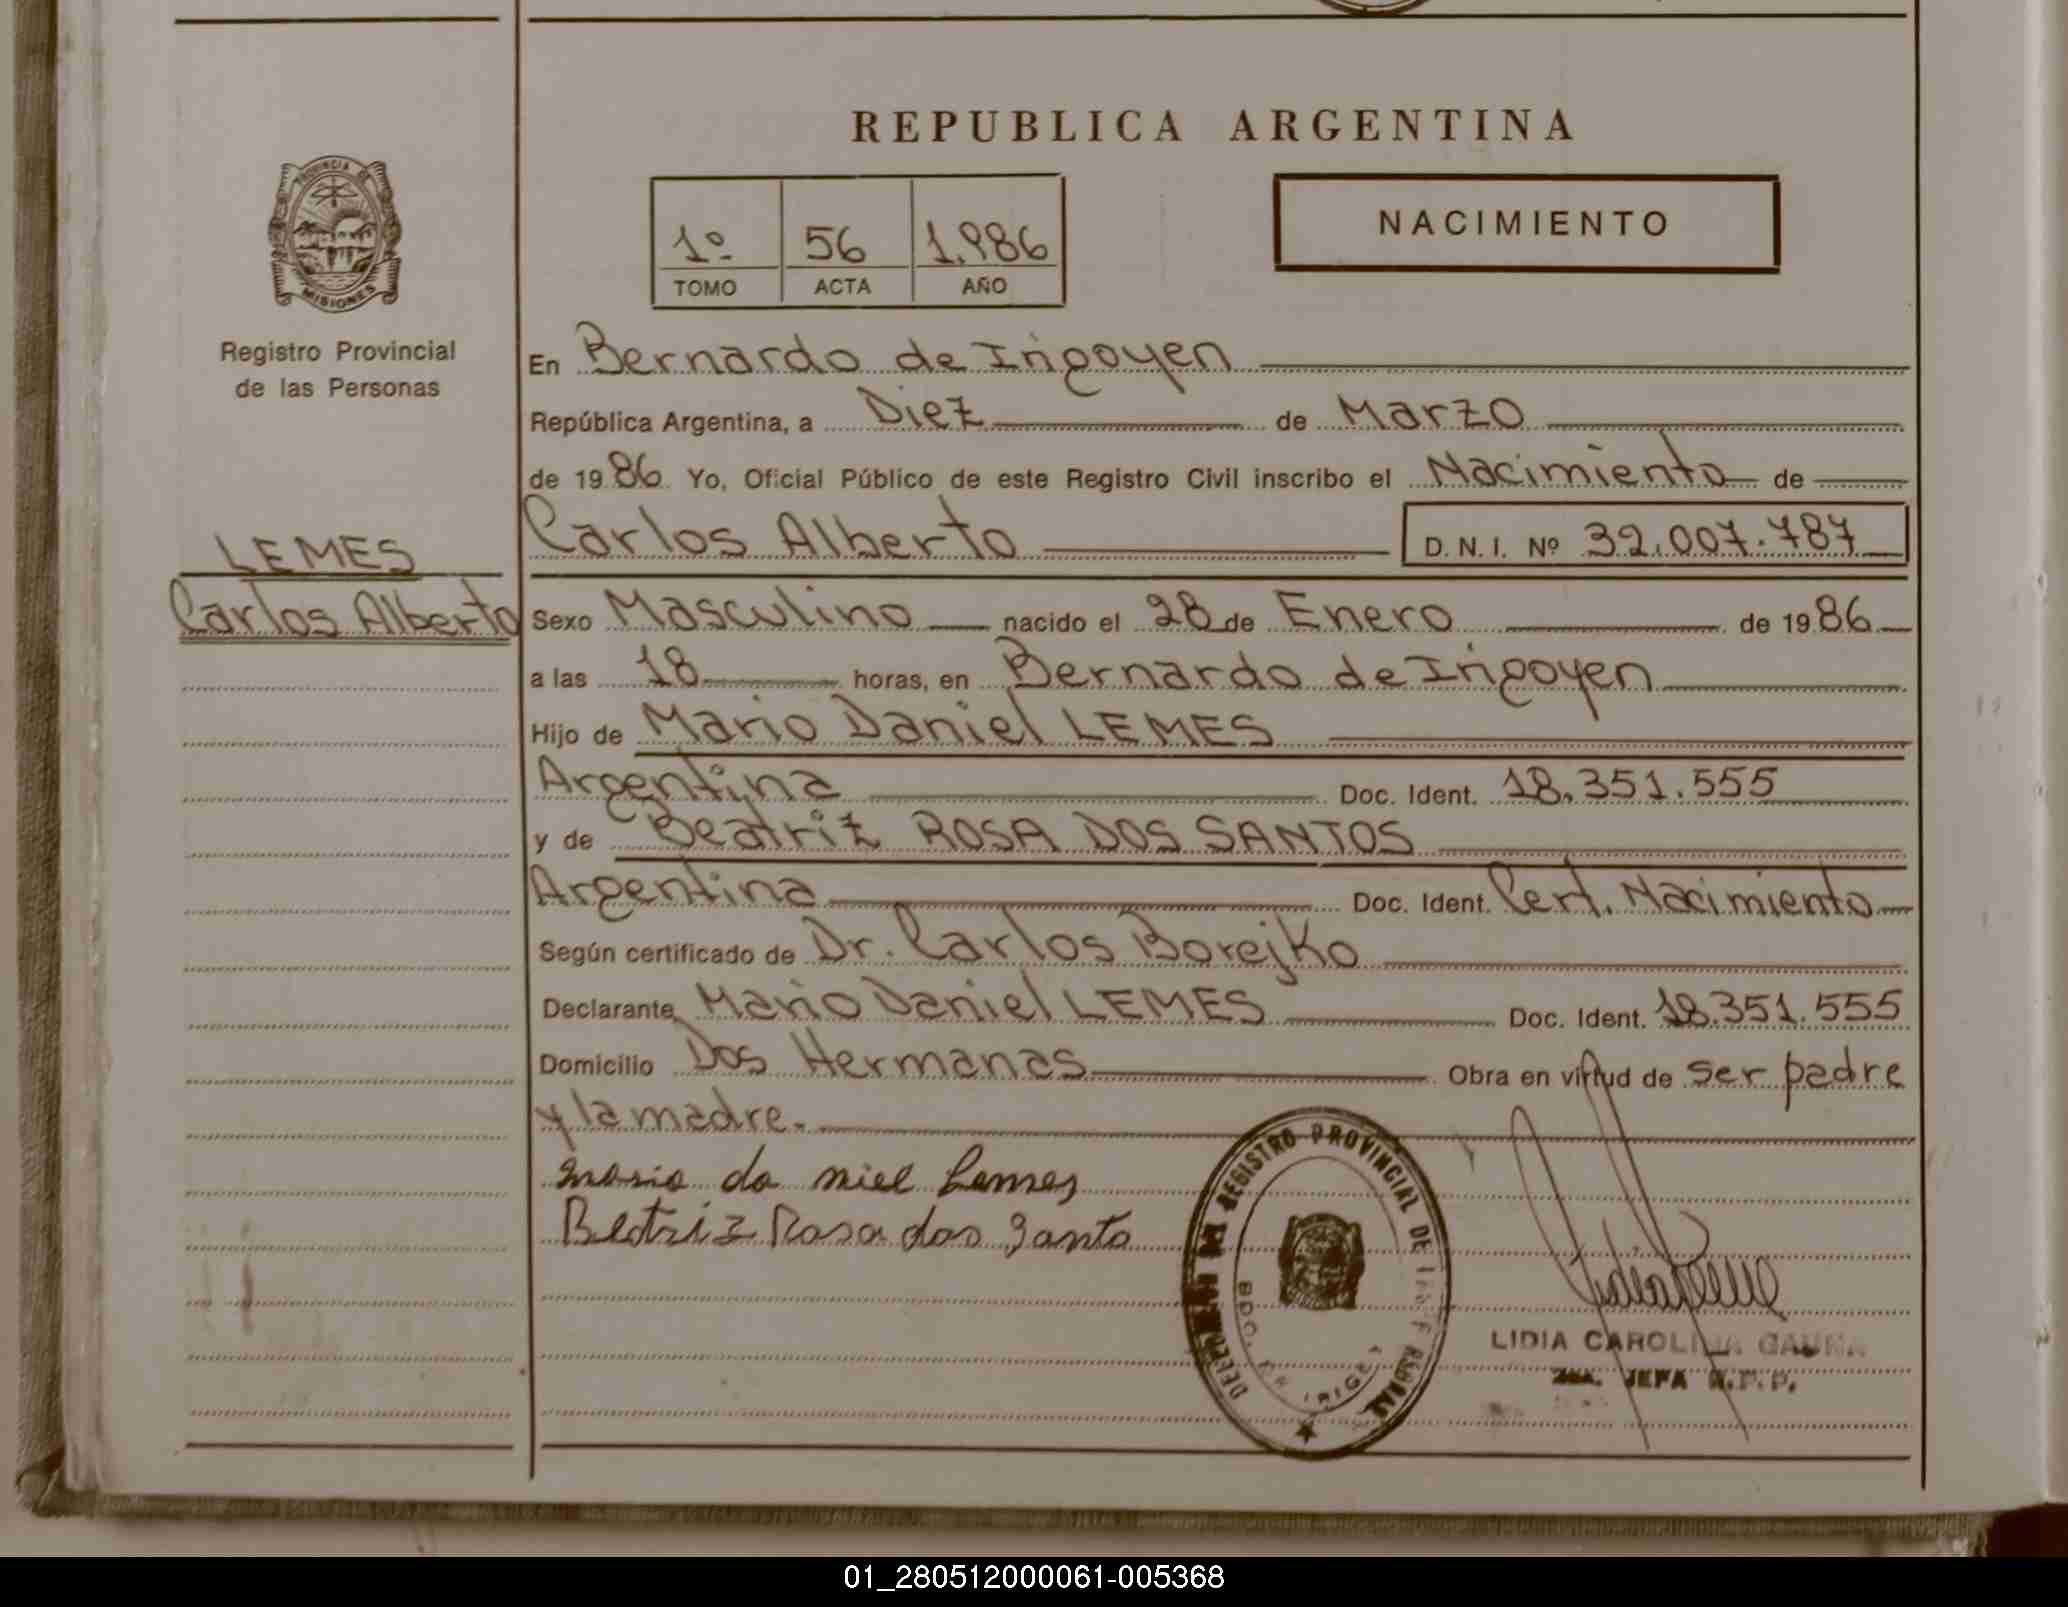 REPUBLICA ARGENTINA
PROVINCIA
MISIONES
Registro Provincial
de las Personas
LEMES
Carlos Alberto
1º 56 1.986
TOMO ACTA AÑO
NACIMIENTO
En Bernardo de Irigoyen
República Argentina, a Diez de Marzo
de 1986 Yo, Oficial Público de este Registro Civil inscribo el Nacimiento de
Carlos Alberto D.N.I. Nº 32.007.787
Sexo Masculino nacido el 28 de Enero de 1986
a las 18 horas, en Bernardo de Irigoyen
Hijo de Mario Daniel LEMES
Argentina Doc. Ident. 18.351.555
y de Beatriz ROSA DOS SANTOS
Argentina Doc. Ident. Cert. Nacimiento
Según certificado de Dr. Carlos Borejko
Declarante Mario Daniel LEMES Doc. Ident. 18.351.555
Domicilio Dos Hermanas Obra en virtud de ser padre
y la madre.
mario da niel Lemes
Beatriz Rosa dos Santo
REGISTRO PROVINCIAL DE
BDO.
LIDIA CAROLINA GAUNA
JEFA R.P.P.
01_280512000061-005368